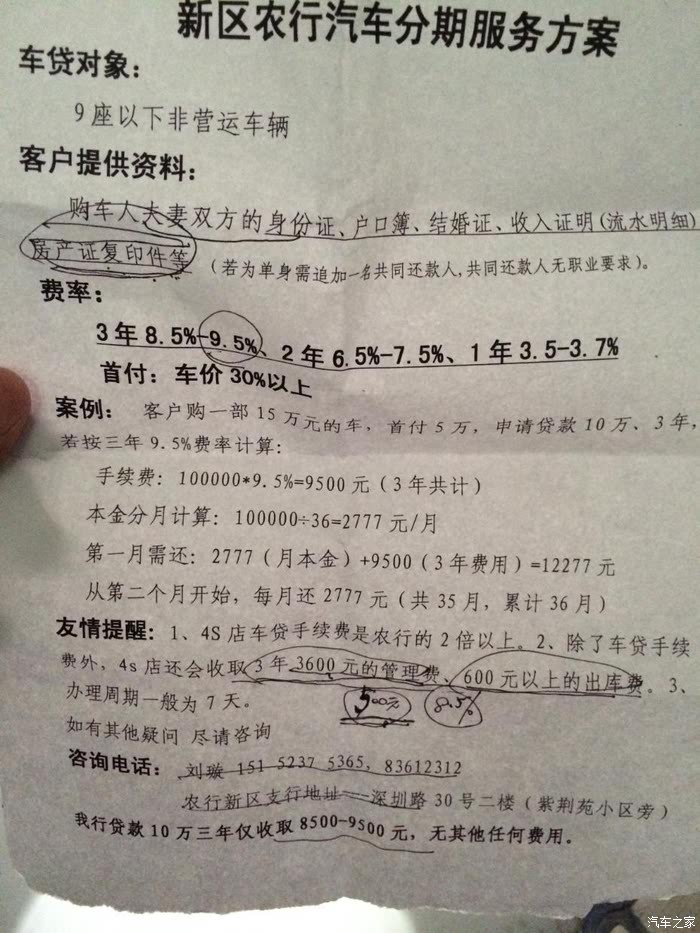 新区农行汽车分期服务方案
车贷对象：
9座以下非营运车辆
客户提供资料：
购车人夫妻双方的身份证、户口簿、结婚证、收入证明(流水明细)
房产证复印件等（若为单身需追加一名共同还款人,共同还款人无职业要求）。
费率：
3年8.5%-9.5%、2年6.5%-7.5%、1年3.5-3.7%
首付：车价30%以上
案例：客户购一部15万元的车，首付5万，申请贷款10万、3年，
若按三年9.5%费率计算：
手续费：100000*9.5%=9500元（3年共计）
本金分月计算：100000÷36=2777元/月
第一月需还：2777（月本金）+9500（3年费用）=12277元
从第二个月开始，每月还2777元（共35月，累计36月）
友情提醒：1、4S店车贷手续费是农行的2倍以上。2、除了车贷手续
费外，4s店还会收取3年3600元的管理费、600元以上的出库费。3、
办理周期一般为7天。
500元 8.5%
如有其他疑问 尽请咨询
咨询电话：刘璇 151 5237 5365，83612312
农行新区支行地址——深圳路30号二楼（紫荆苑小区旁）
我行贷款10万三年仅收取8500-9500元，无其他任何费用。
汽车之家